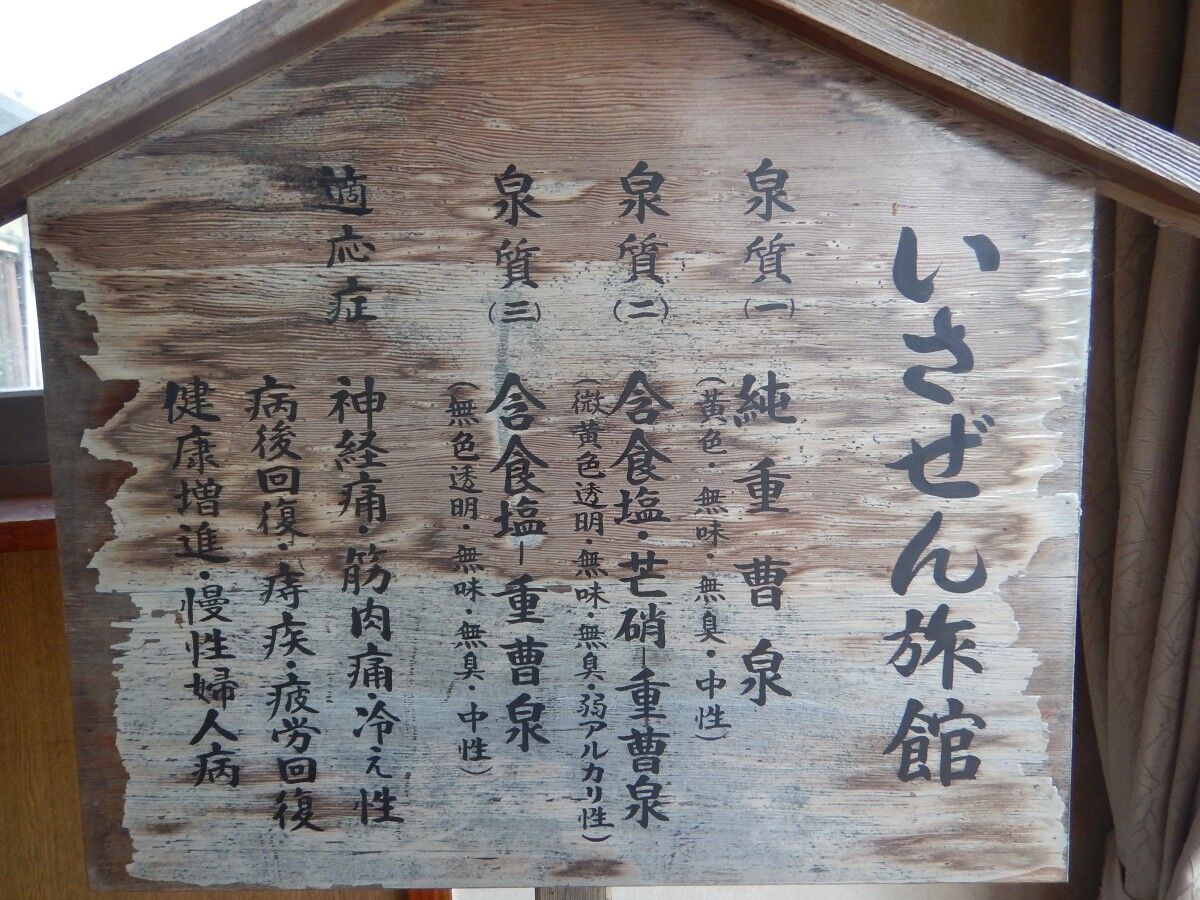 いさぜん旅館
泉質(一) 純重曹泉
(黄色・無味・無臭・中性)
泉質(二) 含食塩・芒硝ー重曹泉
(微黄色透明・無味・無臭・弱アルカリ性)
泉質(三) 含食塩ー重曹泉
(無色透明・無味・無臭・中性)
適応症 神経痛・筋肉痛・冷え性
病後回復・痔疾・疲労回復
健康増進・慢性婦人病